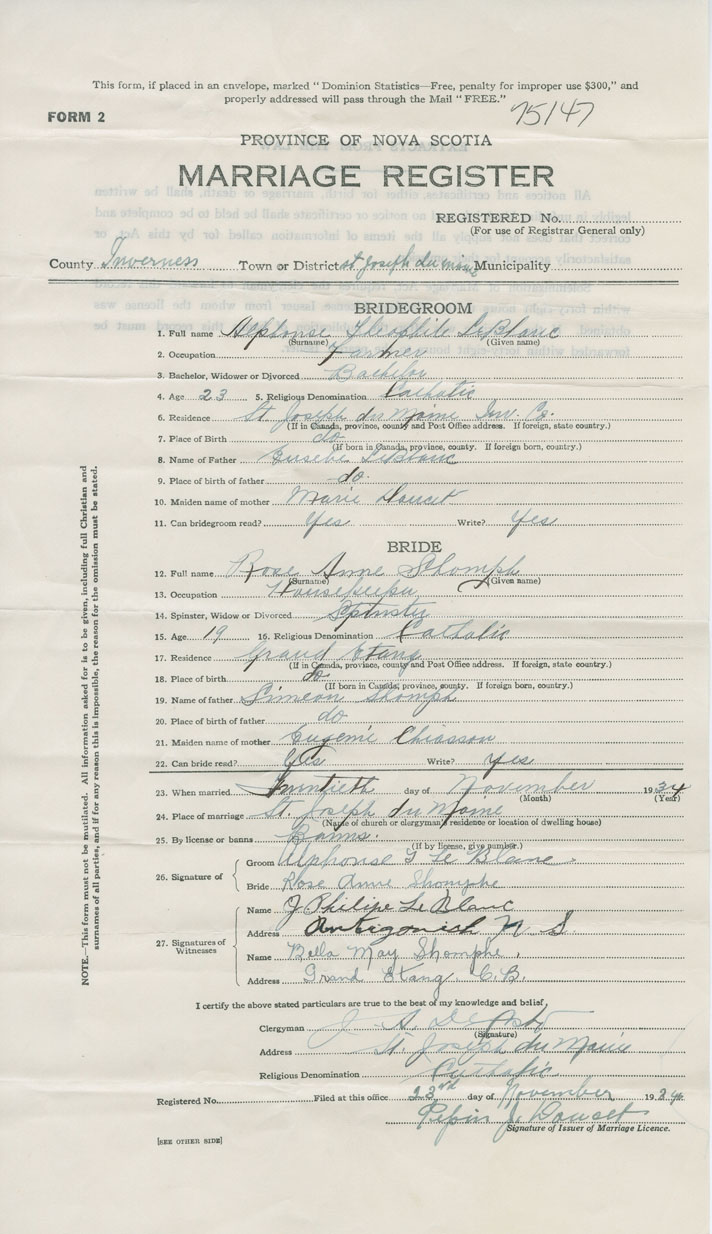 This form, if placed in an envelope, marked "Dominion Statistics—Free, penalty for improper use $300," and
properly addressed will pass through the Mail "FREE."
75147
FORM 2
PROVINCE OF NOVA SCOTIA
MARRIAGE REGISTER
REGISTERED No.
(For use of Registrar General only)
County Inverness Town or District St Joseph du Moine Municipality
BRIDEGROOM
1. Full name Alphonse Theophile LeBlanc
(Surname) (Given name)
2. Occupation Farmer
3. Bachelor, Widower or Divorced Bachelor
4. Age 23 5. Religious Denomination Catholic
6. Residence St Joseph du Moine Inv. Co.
(If in Canada, province, county and Post Office address. If foreign, state country.)
7. Place of Birth do
(If born in Canada, province, county. If foreign born, country.)
8. Name of Father Eusebe LeBlanc
9. Place of birth of father do.
10. Maiden name of mother Marie Doucet
11. Can bridegroom read? Yes Write? Yes
BRIDE
12. Full name Rose Anne Shomph
(Surname) (Given name)
13. Occupation Housekeeper
14. Spinster, Widow or Divorced Spinster
15. Age 19 16. Religious Denomination Catholic
17. Residence Grand Etang
(If in Canada, province, county and Post Office address. If foreign, state country.)
18. Place of birth do
(If born in Canada, province, county. If foreign born, country.)
19. Name of father Simeon Shomph
20. Place of birth of father do
21. Maiden name of mother Eugenie Chiasson
22. Can bride read? Yes Write? Yes
23. When married Twentieth day of November 1934
(Month) (Year)
24. Place of marriage St. Joseph du Moine
(Name of church or clergyman, residence or location of dwelling house)
25. By license or banns Banns.
(If by license, give number.)
26. Signature of
Groom Alphonse T Le Blanc.
Bride Rose Anne Shomphe
27. Signatures of Witnesses
Name J. Philipe Le Blanc
Address Antigonish N. S
Name Bella May Shomphe,
Address Grand Etang. C.B.
I certify the above stated particulars are true to the best of my knowledge and belief,
Clergyman J. A. De
(Signature)
Address St. Joseph du Moine
Religious Denomination Catholic
Registered No. Filed at this office 23rd day of November 1934
Pepin J. Doucet
Signature of Issuer of Marriage Licence.
[SEE OTHER SIDE]
NOTE.—This form must not be mutilated. All information asked for is to be given, including full Christian and
surnames of all parties, and if for any reason this is impossible, the reason for the omission must be stated.